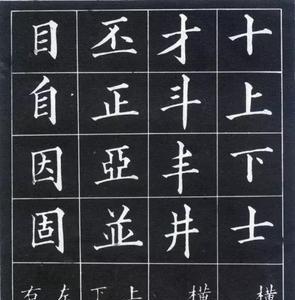 十上下士
才斗丰井
丕正亞並
目自因固
横
横
上下
左右